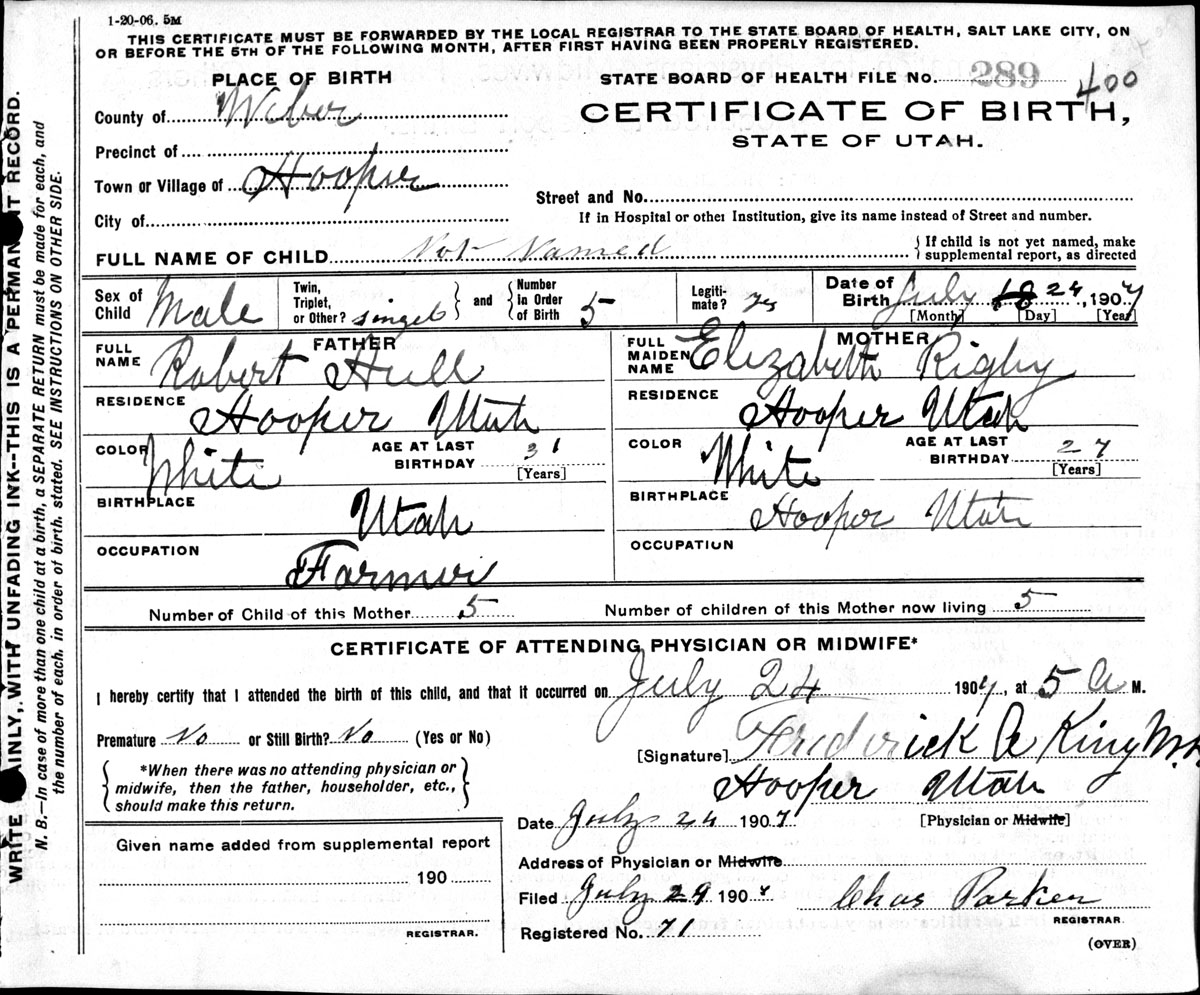 1-20-06. 5M
THIS CERTIFICATE MUST BE FORWARDED BY THE LOCAL REGISTRAR TO THE STATE BOARD OF HEALTH, SALT LAKE CITY, ON
OR BEFORE THE 5TH OF THE FOLLOWING MONTH, AFTER FIRST HAVING BEEN PROPERLY REGISTERED.
WRITE PLAINLY, WITH UNFADING INK--THIS IS A PERMANENT RECORD.
N. B.—In case of more than one child at a birth, a SEPARATE RETURN must be made for each, and
the number of each, in order of birth, stated. SEE INSTRUCTIONS ON OTHER SIDE.
PLACE OF BIRTH
STATE BOARD OF HEALTH FILE NO. 289 400
County of Weber
CERTIFICATE OF BIRTH,
STATE OF UTAH.
Precinct of
Town or Village of Hooper
Street and No.
City of
If in Hospital or other Institution, give its name instead of Street and number.
FULL NAME OF CHILD Not Named
{If child is not yet named, make
supplemental report, as directed
Sex of Child Male
Twin, Triplet, or Other? singel
and
Number in Order of Birth 5
Legitimate? yes
Date of Birth July 18 24, 1907
[Month] [Day] [Year]
FATHER
FULL NAME Robert Hull
RESIDENCE Hooper Utah
COLOR White
AGE AT LAST BIRTHDAY 31
[Years]
BIRTHPLACE Utah
OCCUPATION Farmer
MOTHER
FULL MAIDEN NAME Elizabeth Rigby
RESIDENCE Hooper Utah
COLOR White
AGE AT LAST BIRTHDAY 27
[Years]
BIRTHPLACE Hooper Utah
OCCUPATION
Number of Child of this Mother 5
Number of children of this Mother now living 5
CERTIFICATE OF ATTENDING PHYSICIAN OR MIDWIFE*
I hereby certify that I attended the birth of this child, and that it occurred on July 24 1907, at 5 A M.
Premature No or Still Birth? No (Yes or No)
[Signature] Frederick A King
Hooper Utah
{*When there was no attending physician or
midwife, then the father, householder, etc.,
should make this return.}
Date July 24 1907
[Physician or Midwife]
Address of Physician or Midwife.
Given name added from supplemental report
190
REGISTRAR.
Filed July 29 190
Chas Parker
REGISTRAR.
Registered No. 71
(OVER)